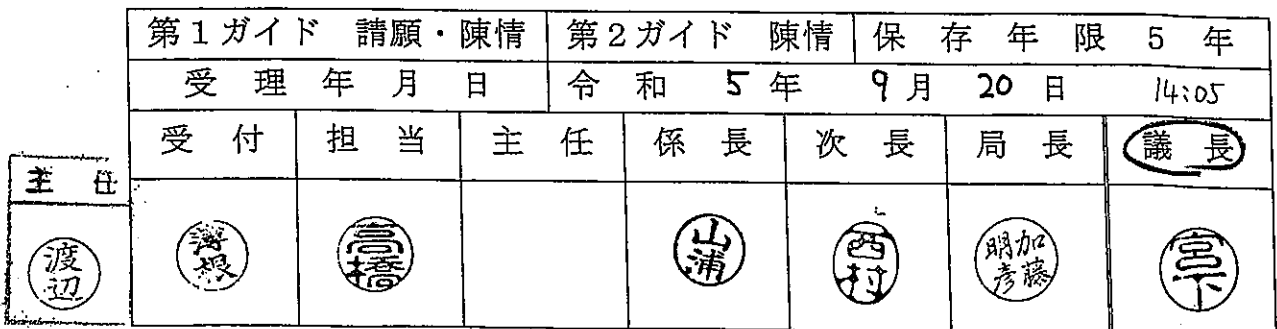 第1ガイド 請願・陳情 第2ガイド 陳情 保存年限 5年
受理年月日 令和 5年 9月 20日 14:05
受付 担当 主任 係長 次長 局長 議長
主任
渡辺 高橋 山浦 西村 加藤明彦 宮下